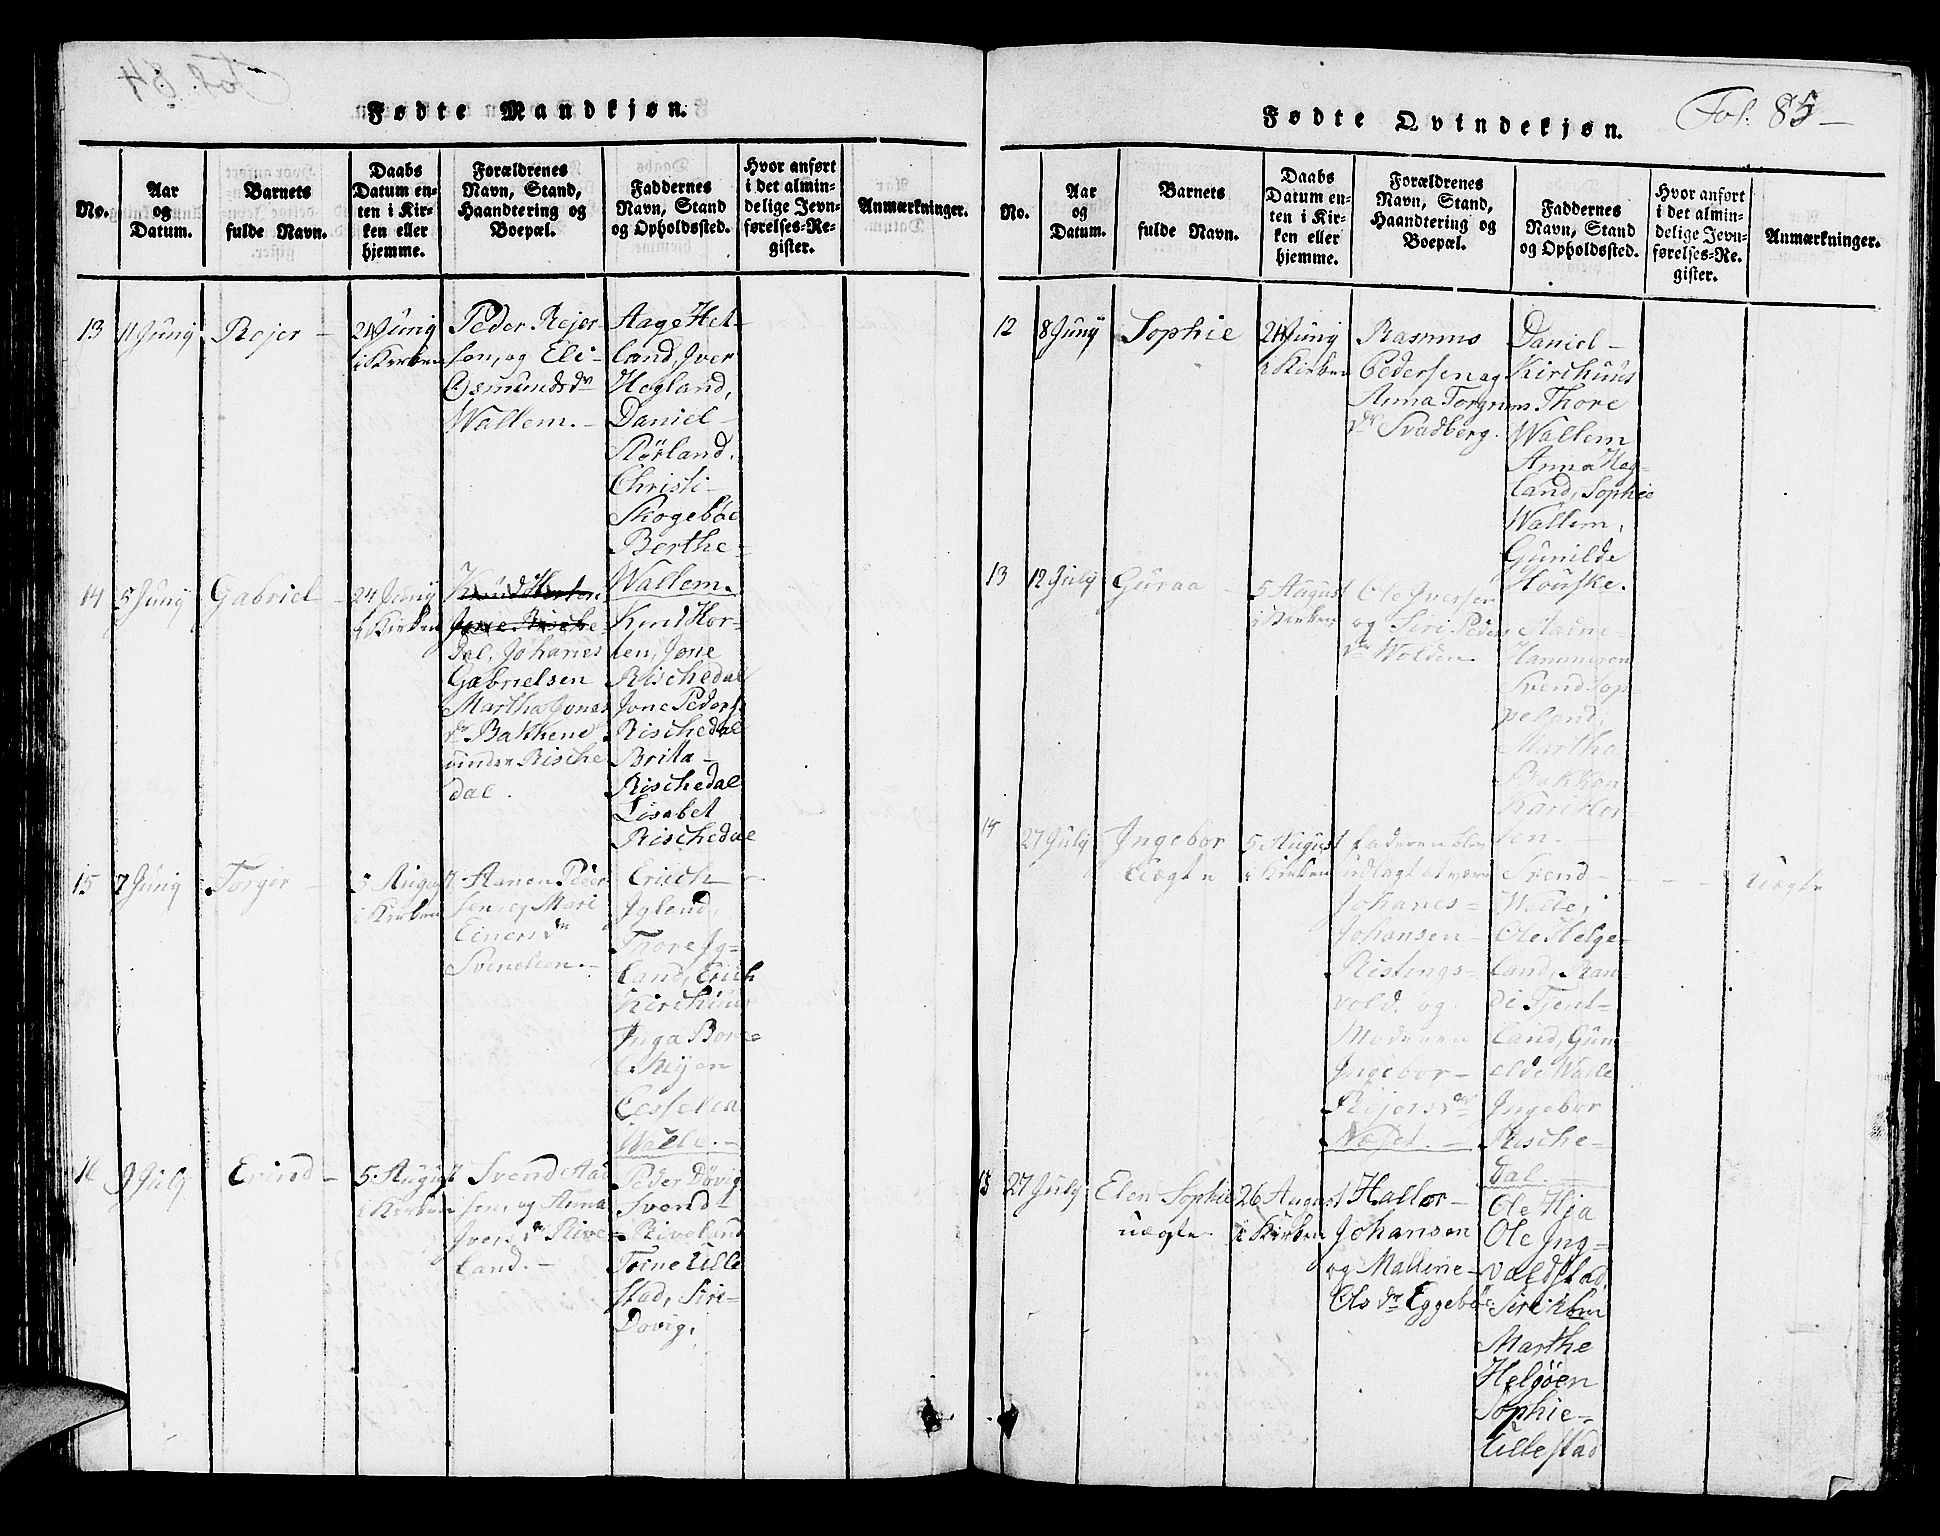 Fødte Mandkjøn.
No.
Aar
og
Datum.
Barnets
fulde Navn.
Daabs
Datum en-
ten i Kir-
ken eller
hjemme.
Forældrenes
Navn, Stand,
Haandtering og
Boepæl.
Faddernes
Navn, Stand
og Opholdssted.
Hvor anført
i det almin-
delige Jevn-
førelses-Re-
gister.
Anmærkninger.
13
11 Juny
Rejer
24 Juny
i Kirken
Peder Rejer
sen, og Eli
Osmundsdr
Wallem.
Aage Het-
land, Iver
Hegland,
Daniel
Rörland.
Christi
Skogeböe
Berthe
Wallem.
14
5 Juny
Gabriel
24 Juny
i Kirken
Knud Horlen
Jone Rische-
dal, Johanes
Gabrielsen
Martha Jonas
dr Bakkene
under Rische
dal.
Knud Hor-
len, Jone
Rischedal
Jone Peders
Rischedal
Britta
Rischedal
Lisabet
Rischedal
15
7 Juny
Torger
5 August
i Kirken
Hanen Peder
sen, og Mari
Einersdr
Erich
Igland,
Thore Ig-
land, Erich
Kirchuus
Inga
Walle.
16
9 July
Erind
5 August
i Kirken
Svend Aa
sen, og Anna
Ivers dr Rive
land.
Peder Dövig
Svend
Riveland
Torne Lille
stad, Siri
Dovig.
Fødte Qvindekjøn.
Fol. 85
No.
Aar
og
Datum.
Barnets
fulde Navn.
Daabs
Datum en-
ten i Kir-
ken eller
hjemme.
Forældrenes
Navn, Stand,
Haandtering og
Boepæl.
Faddernes
Navn, Stand
og Opholdssted.
Hvor anført
i det almin-
delige Jevn-
førelses-Re-
gister.
Anmærkninger.
12
8 Juny
Sophie
24 Juny
i Kirken
Rasmus
Pedersen og
Anna Torgrims
dr Svadberg.
Daniel
Kirchuus
Thore
Wallem
Anna Heg-
land, Sophie
Wallem,
Gunilde
Houske.
13
12 July
Guraa
5 August
i Kirken
Ole Iversen
og Siri Peders
dr Wolden
Svend Top
peland,
Martha
Bakken
Kari Hor
len.
14
27 July
Ingebor
Uægte
5 August
i Kirken
Faderen blev
udlagt at være
Johanes
Johansen
Ristings-
vold, og
Moderen
Ingebor
Rejersdr
Næset.
Svend
Walle,
Ole Helge-
land, Ran-
di Tjent-
land, Gun-
elde Walle
Ingebor
Rische-
dal.
Uægte
15
27 July
Elen Sophie
uægte
26 August
i Kirken
Hallor
Johansen
og Malline
Ols dr Eggeböe
Ole Hja
Ole Ing-
valdstad
Siri
Marthe
Helgöen
Sophie
Lillestad